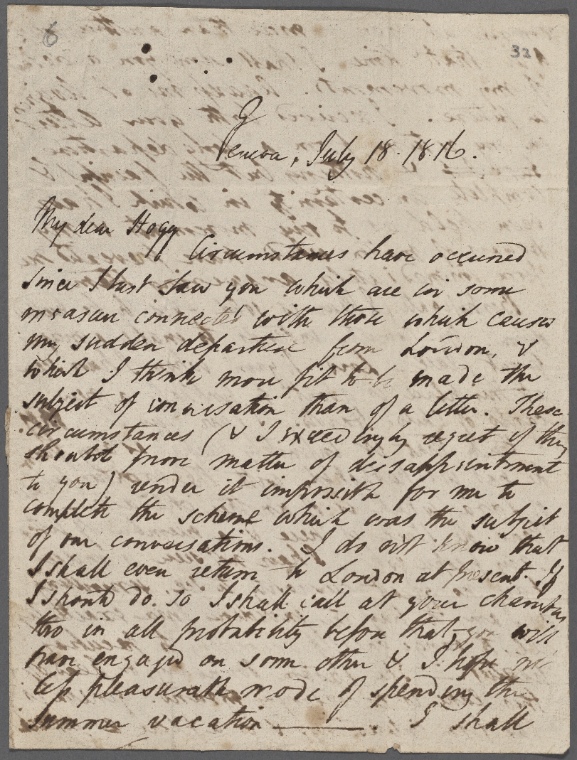 6
32
Geneva, July 18. 1816.
My dear Hogg
Circumstances have occurred
since I last saw you which are in some
measure connected with those which causes
my sudden departure from London, &
which I think more fit to be made the
subject of conversation than of a letter. These
circumstances (& I exceedingly regret if they
should prove matter of dissappointment
to you) render it impossible for me to
complete the scheme which was the subject
of our conversations. I do not know that
I shall even return to London at present. If
I should do so I shall call at your chambers
tho in all probability before that, you will
have engaged on some other & I hope no
less pleasurable mode of spending the
summer vacation ——. I shall